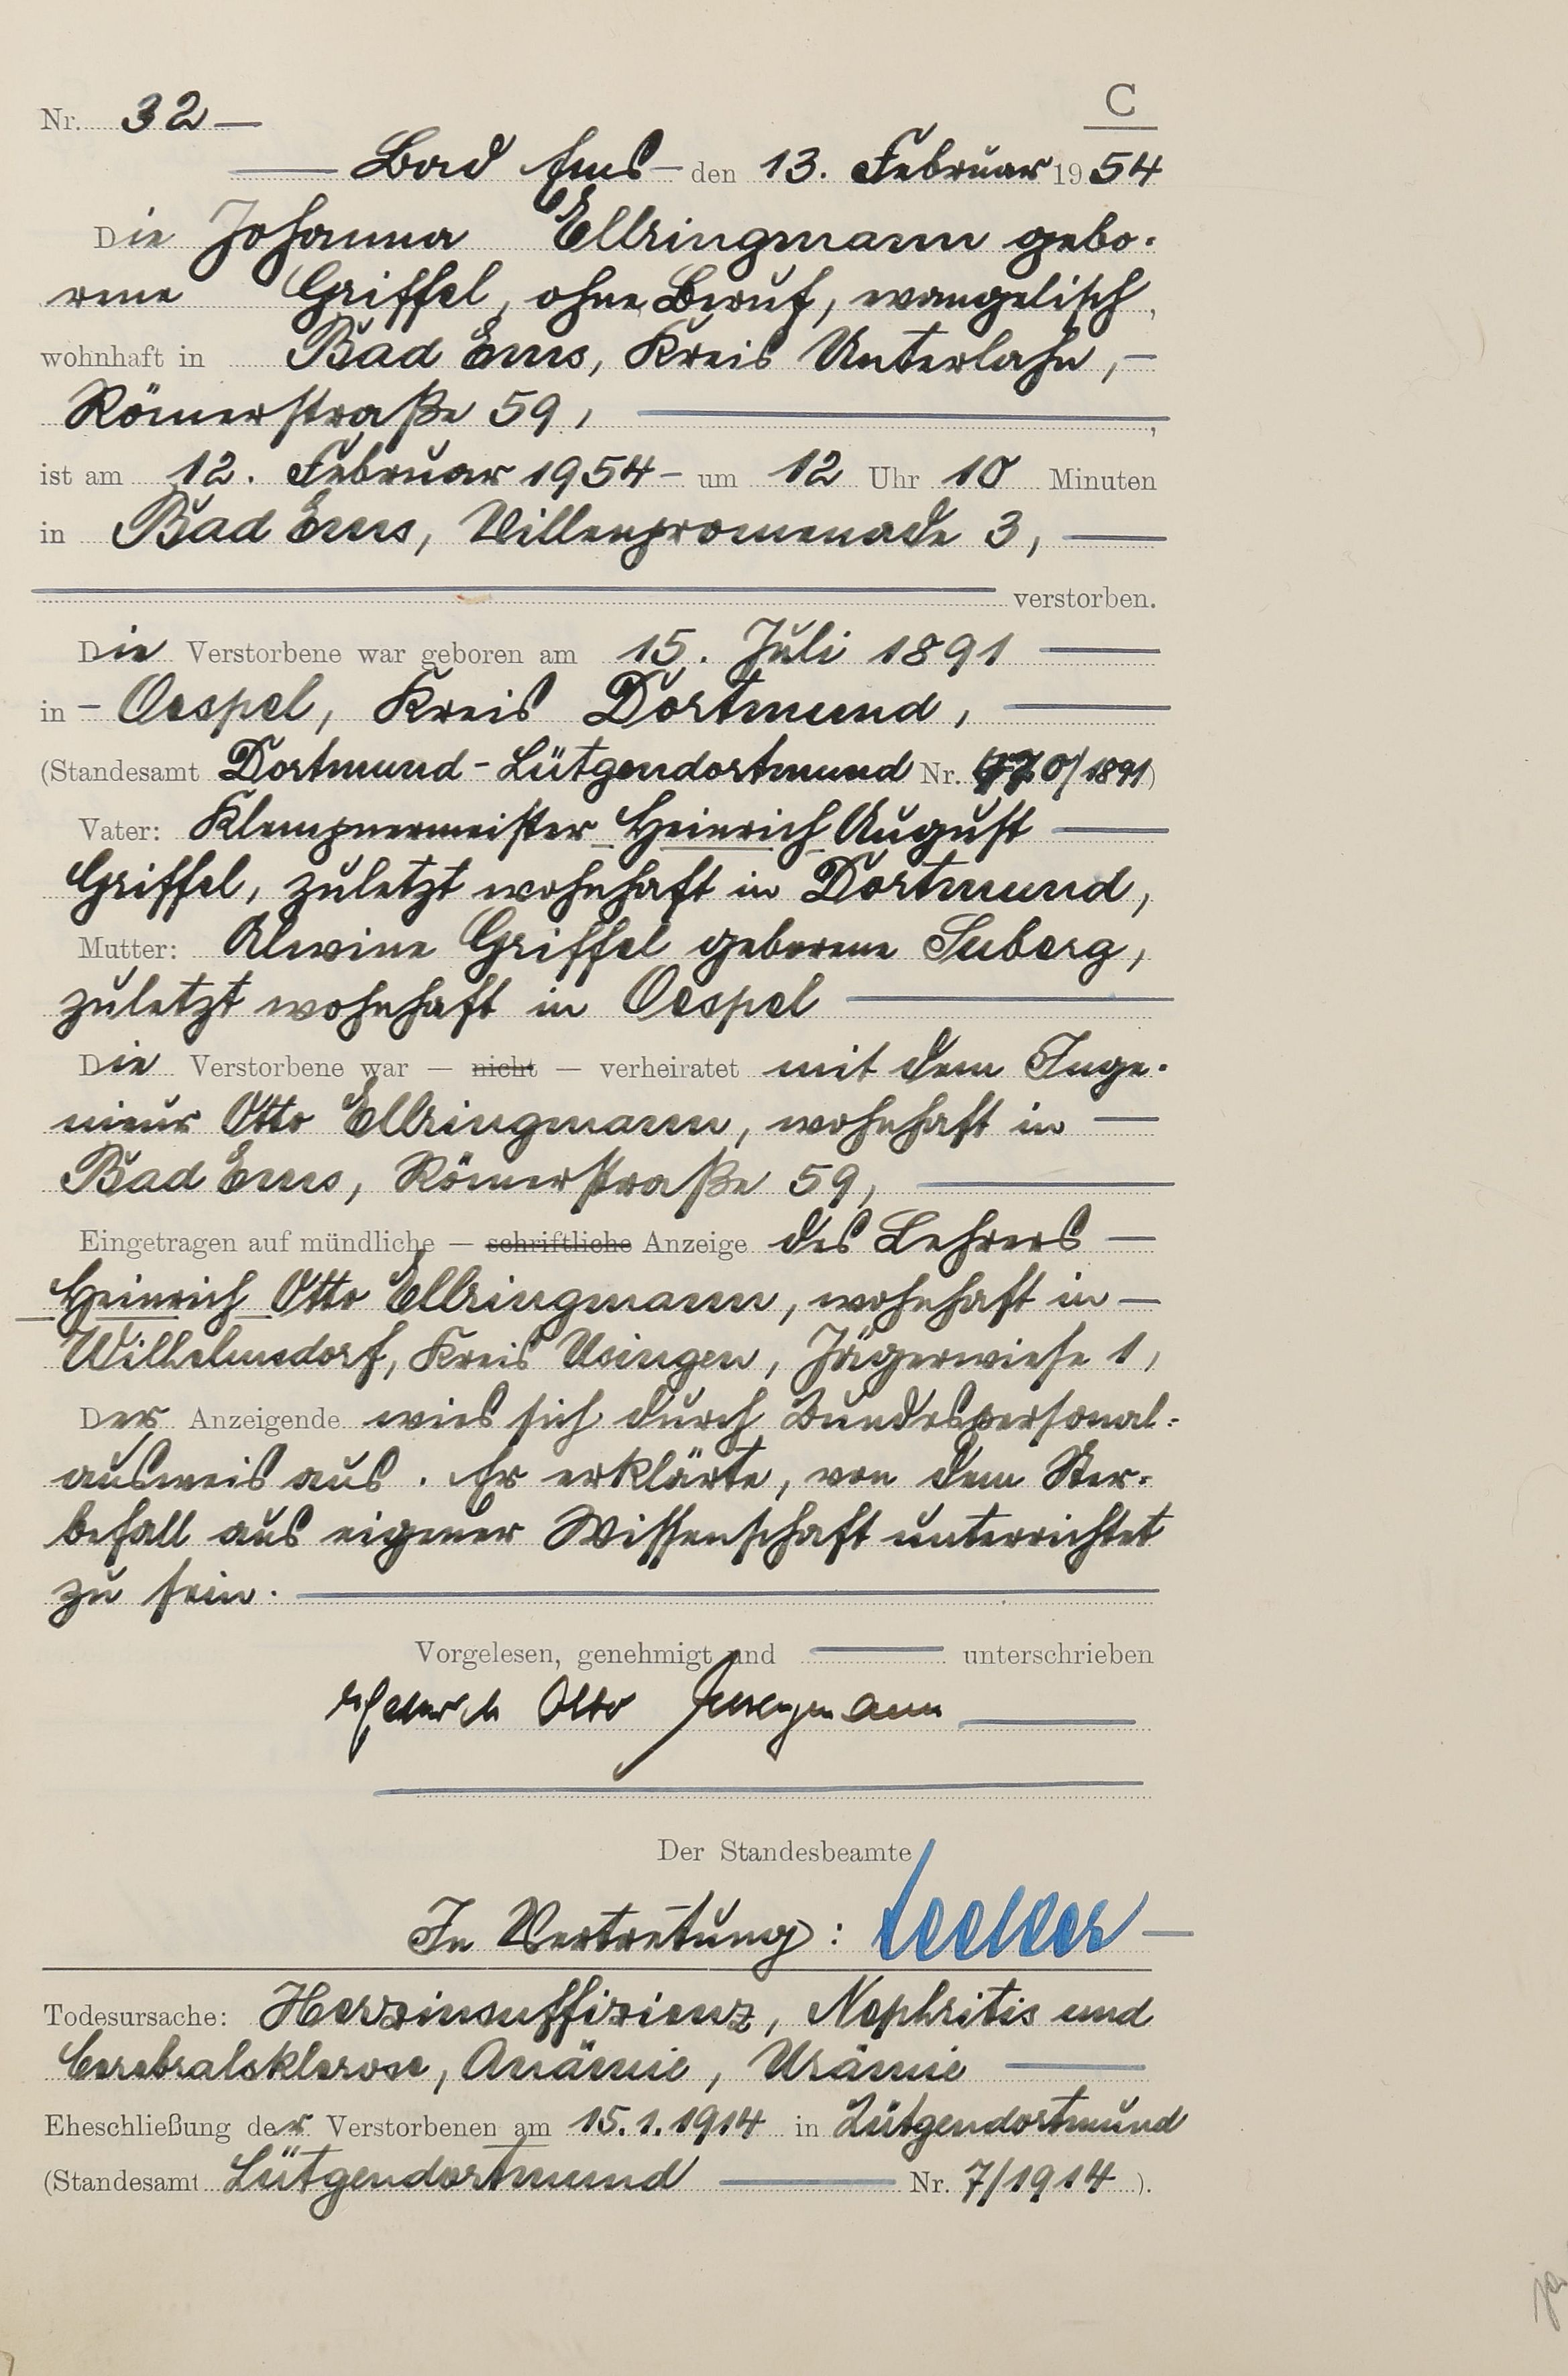 C
Nr. 32 —
— Bad Ems — den 13. Februar 1954
Die Johanna Ellringmann gebo-
rene Griffel, ohne Beruf, evangelisch,
wohnhaft in Bad Ems, Kreis Unterlahn, —
Römerstraße 59, —,
ist am 12. Februar 1954 — um 12 Uhr 10 Minuten
in Bad Ems, Villenpromenade 3, —
verstorben.
Die Verstorbene war geboren am 15. Juli 1891 —
in — Oespel, Kreis Dortmund, —
(Standesamt Dortmund-Lütgendortmund Nr. /1891)
Vater: Klempnermeister Heinrich August —
Griffel, zuletzt wohnhaft in Dortmund,
Mutter: Alwine Griffel geborene Suberg,
zuletzt wohnhaft in Oespel —
Die Verstorbene war — nicht — verheiratet mit dem Inge-
nieur Otto Ellringmann, wohnhaft in —
Bad Ems, Römerstraße 59, —
Eingetragen auf mündliche — schriftliche Anzeige des Lehrers —
Heinrich Otto Ellringmann, wohnhaft in —
Wilhelmsdorf, Kreis Usingen, Jägerwiese 1,
Der Anzeigende wies sich durch Bundespersonal-
ausweis aus. Er erklärte, von dem Ster-
befall aus eigener Wissenschaft unterrichtet
zu sein. —
Vorgelesen, genehmigt und — unterschrieben
Heinrich Otto Ellringmann —
Der Standesbeamte
In Vertretung: —
Todesursache: Herzinsuffizienz, Nephritis und
Cerebralsklerose, Anämie, Urämie —
Eheschließung der Verstorbenen am 15.1.1914 in Lütgendortmund
(Standesamt Lütgendortmund — Nr. 7/1914).